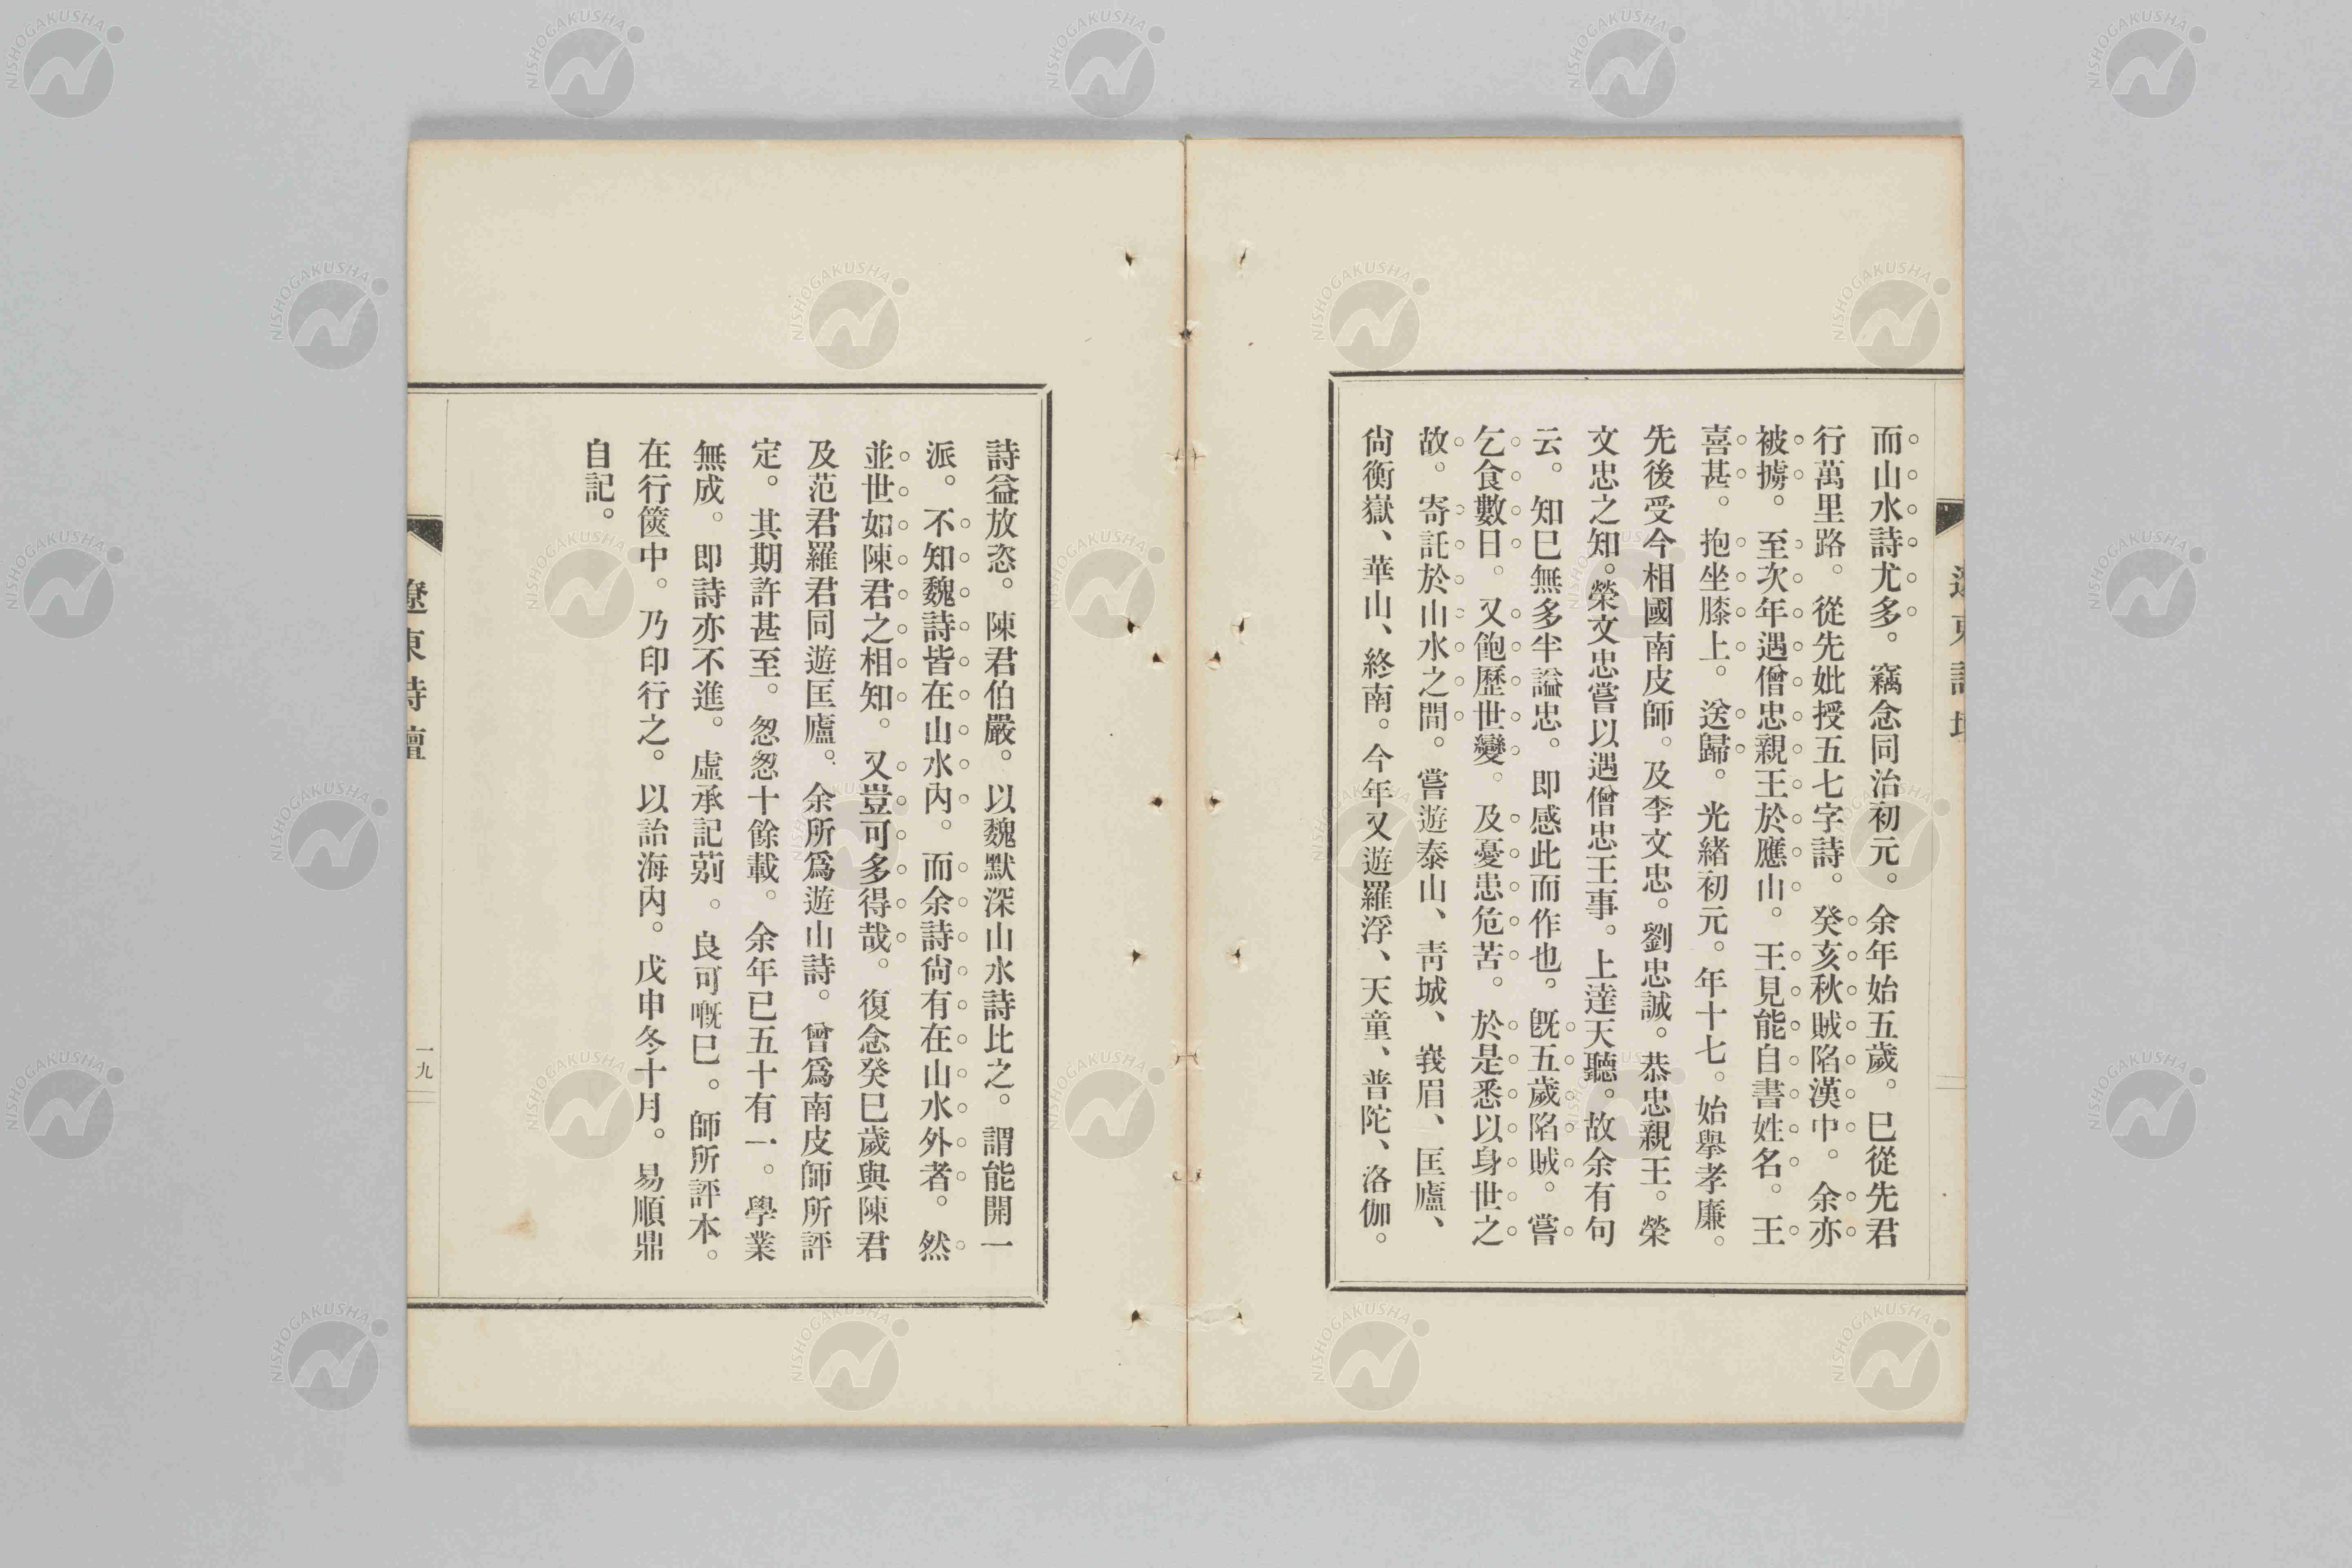 而山水詩尤多。竊念同治初元。余年始五歲。巳從先君
行萬里路。從先妣授五七字詩。癸亥秋賊陷漢中。余亦
被擄。至次年遇僧忠親王於應山。王見能自書姓名。王
喜甚。抱坐膝上。送歸。光緒初元。年十七。始擧孝廉。
先後受今相國南皮師。及李文忠。劉忠誠。恭忠親王。榮
文忠之知。榮文忠嘗以遇僧忠王事。上達天聽。故余有句
云。知巳無多半謚忠。即感此而作也。旣五歲陷賊。嘗
乞食數日。又飽歷世變。及憂患危苦。於是悉以身世之
故。寄託於山水之間。嘗遊泰山、靑城、峩眉、匡廬、
尙衡嶽、華山、終南。今年又遊羅浮、天童、普陀、洛伽。
詩益放恣。陳君伯嚴。以魏默深山水詩比之。謂能開一
派。不知魏詩皆在山水內。而余詩尙有在山水外者。然
並世如陳君之相知。又豈可多得哉。復念癸巳歲與陳君
及范君羅君同遊匡廬。余所爲遊山詩。曾爲南皮師所評
定。其期許甚至。怱怱十餘載。余年已五十有一。學業
無成。即詩亦不進。虛承記莂。良可嘅巳。師所評本。
在行篋中。乃印行之。以詒海內。戊申冬十月。易順鼎
自記。
遼東詩壇
一九
NISHOGAKUSHA